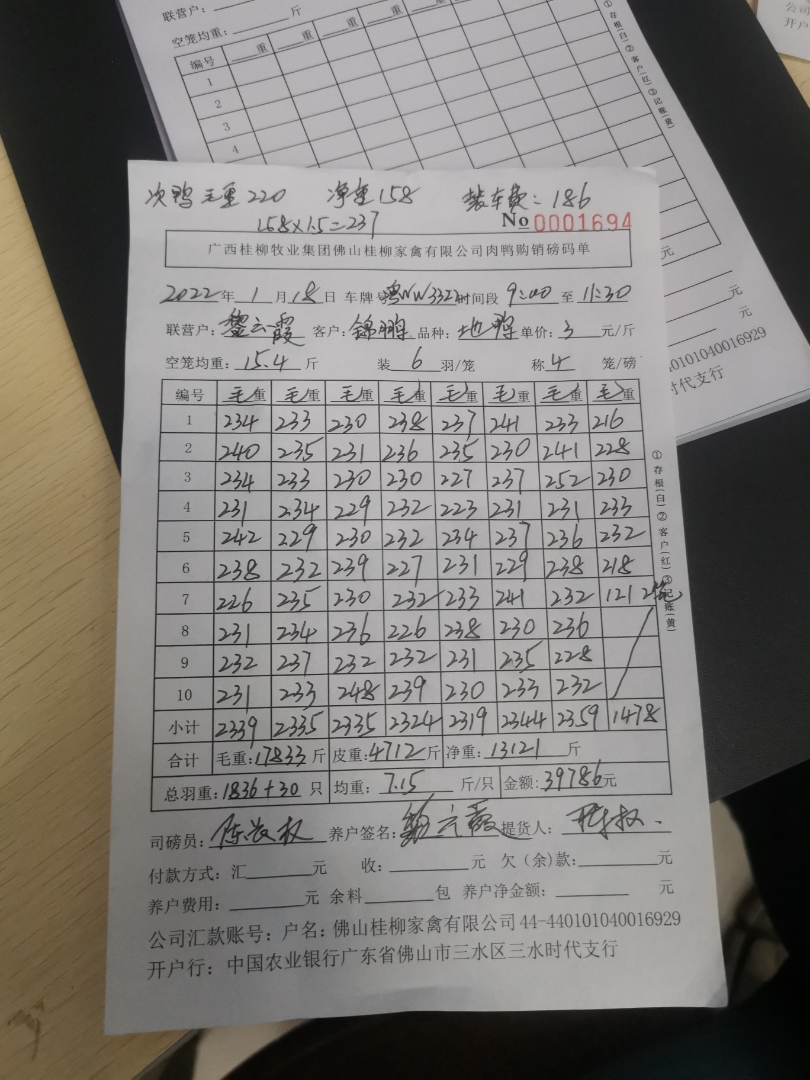 联营户：______斤
空笼均重：______斤
编号 __重 __重 __重 __重 __重
1
2
3
4
①存根(白)②客户(红)③记账(黄)
公司
开户
元
元
元
0101040016929
时代支行
次鸭 毛重220 净重158 装车费：186
158×1.5=237
No 0001694
广西桂柳牧业集团佛山桂柳家禽有限公司肉鸭购销磅码单
2022年 1月 18日 车牌号 NW332 时间段 9:00 至 11:30
联营户：黎云霞 客户：锦鹏 品种：地鸭 单价：3 元/斤
空笼均重：15.4 斤 装 6 羽/笼 称 4 笼/磅
编号 毛重 毛重 毛重 毛重 毛重 毛重 毛重 毛重
1 234 233 230 238 237 241 233 216
2 240 235 231 236 235 230 241 228
3 234 233 230 230 227 237 252 230
4 231 234 229 232 223 231 231 233
5 242 229 230 232 234 237 236 232
6 238 232 239 227 231 229 238 218
7 226 235 230 232 233 241 232 121 2笼
8 231 234 236 226 238 230 236
9 232 237 232 232 231 235 228
10 231 233 248 239 230 233 232
小计 2339 2335 2335 2324 2319 2344 2359 1478
合计 毛重：17833 斤 皮重：4712 斤 净重：13121 斤
总羽重：1836+30 只 均重：7.15 斤/只 金额：39786元
①存根(白)②客户(红)③记账(黄)
司磅员： 养户签名：黎云霞 提货人：
付款方式：汇______元 收：______元 欠（余）款：______元
养户费用：______元 余料______包 养户净金额：______元
公司汇款账号：户名：佛山桂柳家禽有限公司 44-440101040016929
开户行：中国农业银行广东省佛山市三水区三水时代支行